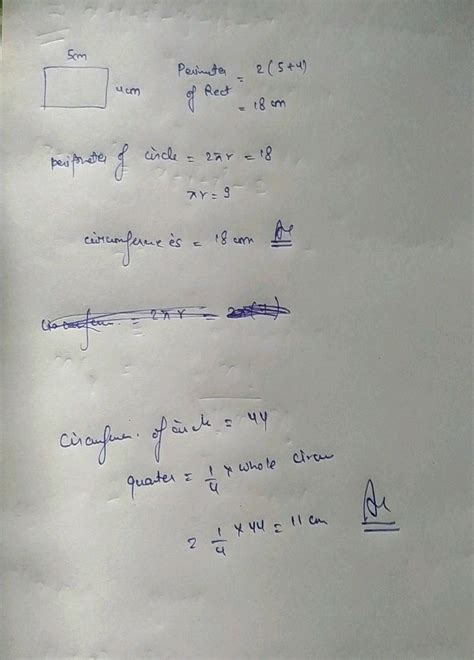 5cm
4cm
Perimeter of Rect = 2(5+4)
= 18 cm
perimeter of circle = 2πr = 18
πr = 9
circumference is = 18 cm Ar
= 2πr =
Circumfen. of circle = 44
quarter = 1/4 × whole circum
= 1/4 × 44 = 11 cm Ar